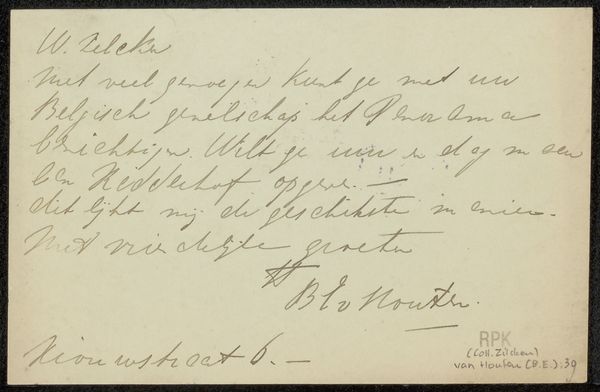 W. Zilcken
Met veel genoegen kunt ge met uw
Belgisch gezelschap het Panorama
bezichtigen. Wilt ge uur en dag m aan
den Hedderhof opgeven. —
dit lijkt mij de geschikste manier.
Met vriendelijke groeten
tt
BEv Houten.
Nieuwstraat 6. —
RPK
(Coll. Zilcken)
van Houten (B.E.):39